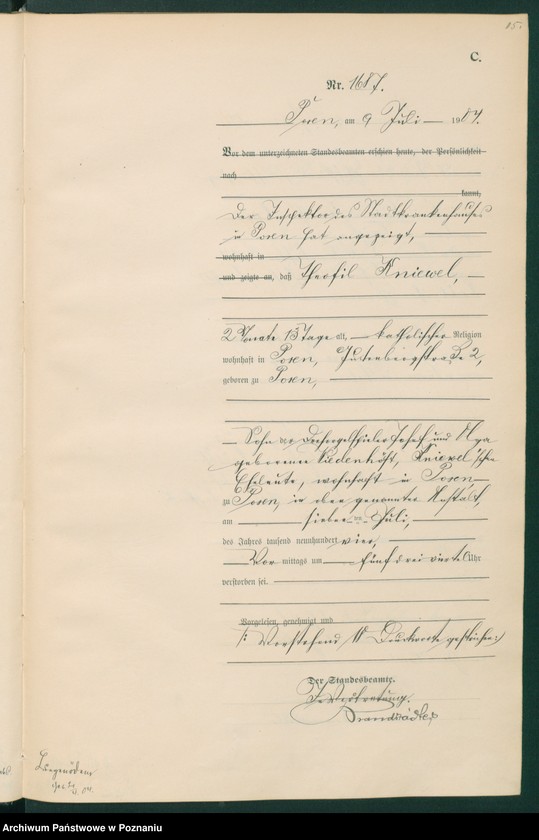 15.
C.
Nr. 1687.
Posen, am 9 Juli 1904.
Vor dem unterzeichneten Standesbeamten erschien heute, der Persönlichkeit
nach
kannt,
Der Inspektor des Stadtkrankenhauses
in Posen hat angezeigt,
wohnhaft in
und zeigte an, daß Theofil Kniewel,
2 Monate 13 Tage alt, katholischer Religion
wohnhaft in Posen, 2,
geboren zu Posen,
Sohn des Josef und
geborenen Kniewel'schen
Eheleute, wohnhaft in Posen
zu Posen, in oben genannter Anstalt,
am sieben ten Juli,
des Jahres tausend neunhundert vier,
Vor mittags um fünf drei viertel Uhr
verstorben sei.
Vorgelesen, genehmigt und
/: Vorstehend Druckworte gestrichen :/
Der Standesbeamte.
In Vertretung.